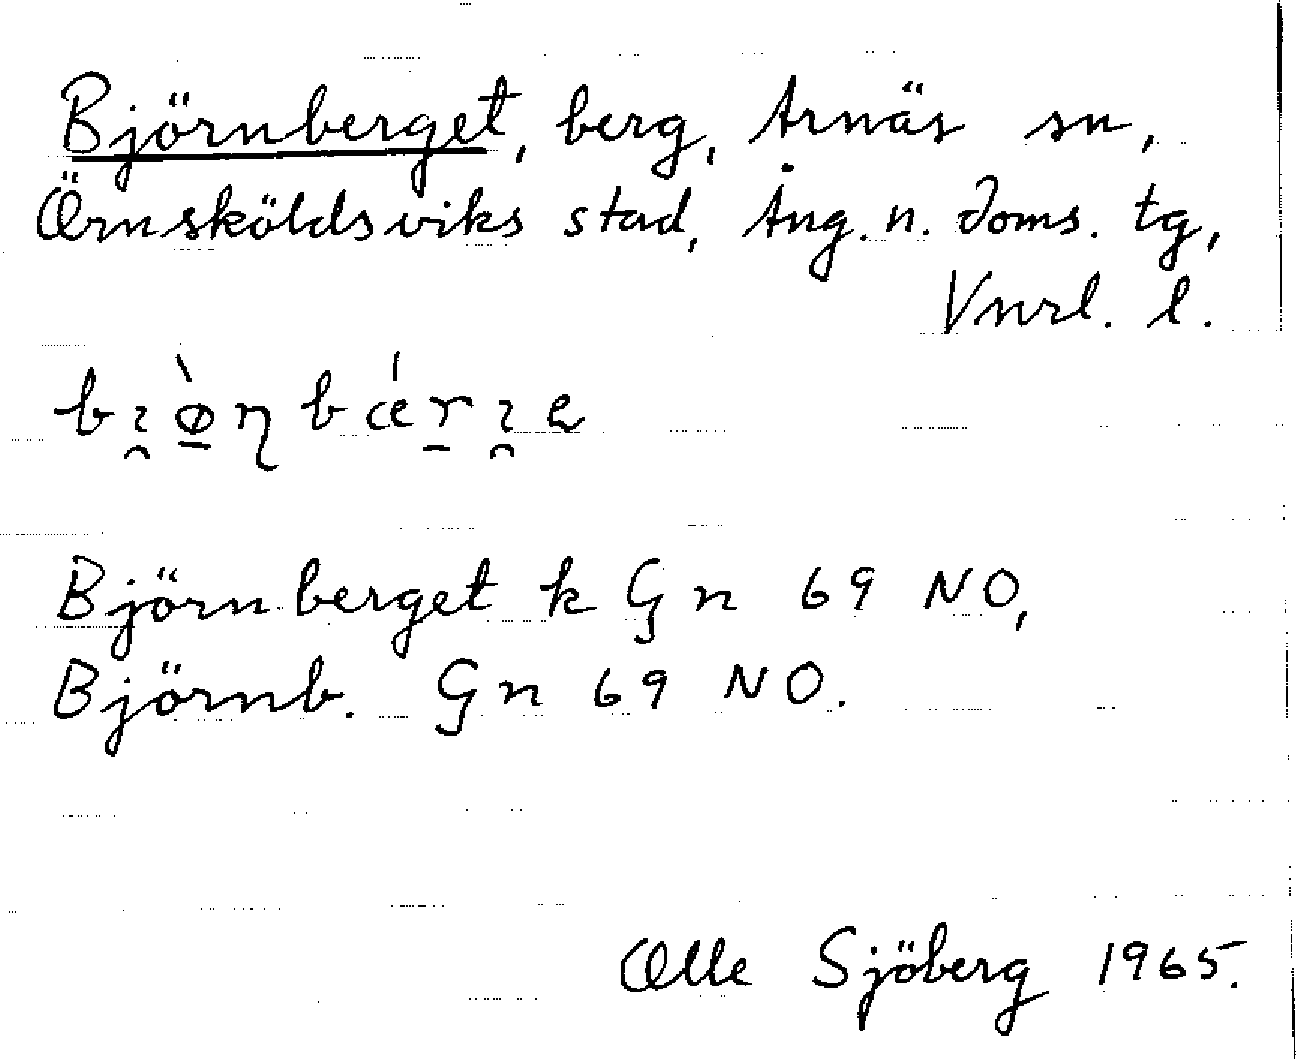 Björnberget, berg, Arnäs sn,
Örnsköldsviks stad, Ång. n. doms. tg,
Vnrl. l.
Björnberget k Gn 69 NO,
Björnb. Gn 69 NO.
Olle Sjöberg 1965.